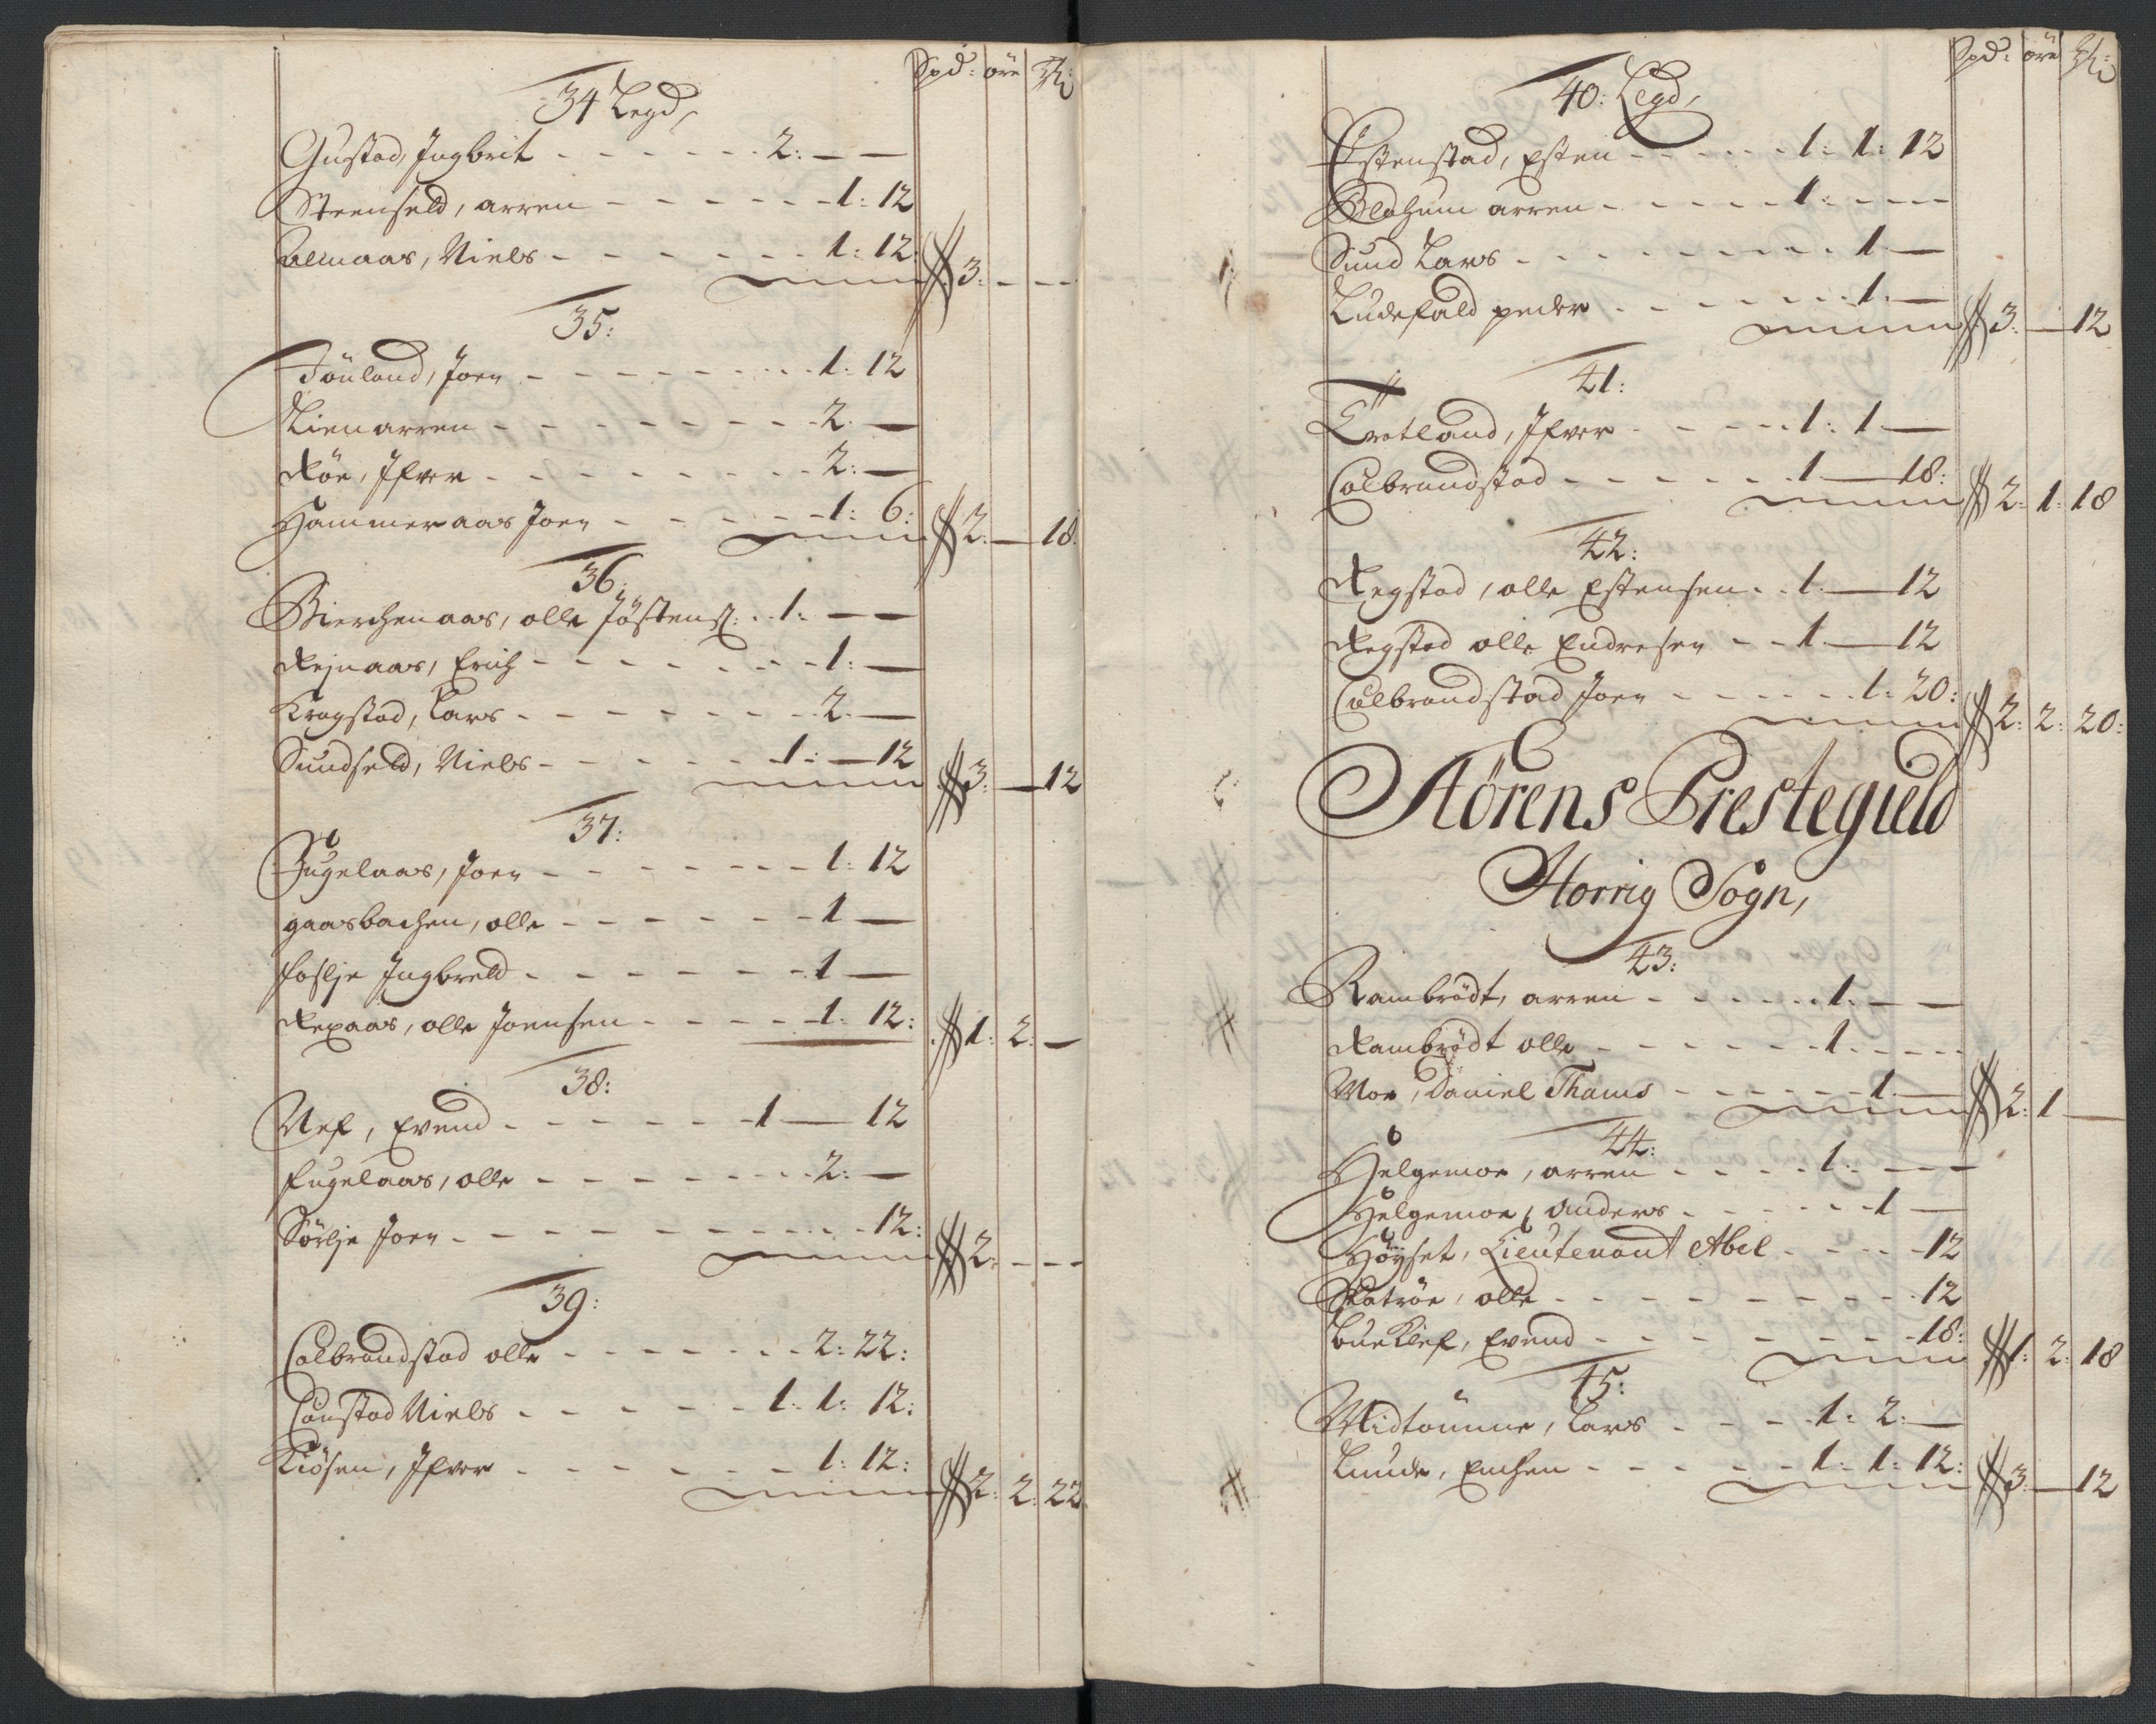 Spd: öre
34 Legd,
Gustad, Ingbrit - - - - - - 2: — —
Steenfeld, arren - - - - - - 1: 12
Almaas, Niels - - - - - - 1: 12: 3: - - -
35:
Fönland, Joen - - - - - - - 1: 12
Lien arren - - - - - - - - 2. —
Röe, Ifver - - - - - - - - 2: —
Hammeraas Joen - - - - - 1: 6: 2: — 18:
36:
Bierchenaas, olle Jöstens: . . 1: — —
Rejnaas, Erich - - - - - - - 1: —
Kragstad, Lars - - - - - - - 2. —
Sundfeld, Niels - - - - - 1: — 12 3: — 12
37:
Fugelaas, Joen - - - - - - - 1: 12
gaasbachen, olle - - - - - - 1 —
foslje Ingbreld - - - - - - - 1 —
Rexaas, olle Joensen - - - - 1: 12: 1: 2: —
38:
Nef, Evend - - - - - - 1 — 12
fugelaas, olle - - - - - - - 2: —
Sörlje Joen - - - - - - - - - 12: 2: - - -
39:
Colbrandstad olle - - - - - - 2: 22:
Constad Niels - - - - - 1: 1: 12:
Kiösen, Ifver - - - - - - 1: 12: 2: 2: 22
Spd: öre
40: Legd,
Estenstad, Esten - - - - - 1: 1: 12
Bladhum arren - - - - - 1: - - -
Sund Lars - - - - - - - - 1. —
Ludefald peder - - - - - - 1. — 3: — 12
41:
Trotland, Ifver - - - - - 1: 1 —
Colbrandstad - - - - - - 1 — 18: 2: 1: 18
42:
Regstad, olle Estensen. . 1. — 12
Regstad olle Endresen - - 1 — 12
Colbrandstad Joen - - - - - 1: 20: 2: 2: 20:
Störens Presteguld
Horrig Sogn,
43:
Rambrödt, arren - - - - - 1: — —
Rambrödt olle - - - - - - 1. - - -
Moe, Daniel Thams - - - - - 1. — 2: 1 —
44:
Helgemoe, arren - - - - 1: - - -
Helgemoe, Anders - - - - - 1 —
Höyset, Lieutenant Abel - - - - 12
Skatröe, olle - - - - - - - - 12
Bueklef, Evend - - - - - - - 18: 1: 2: 18
45:
Midtoünne, Lars - - - 1: 2: —
Lunde, Enchen - - - - - 1: 1: 12: 3: — 12